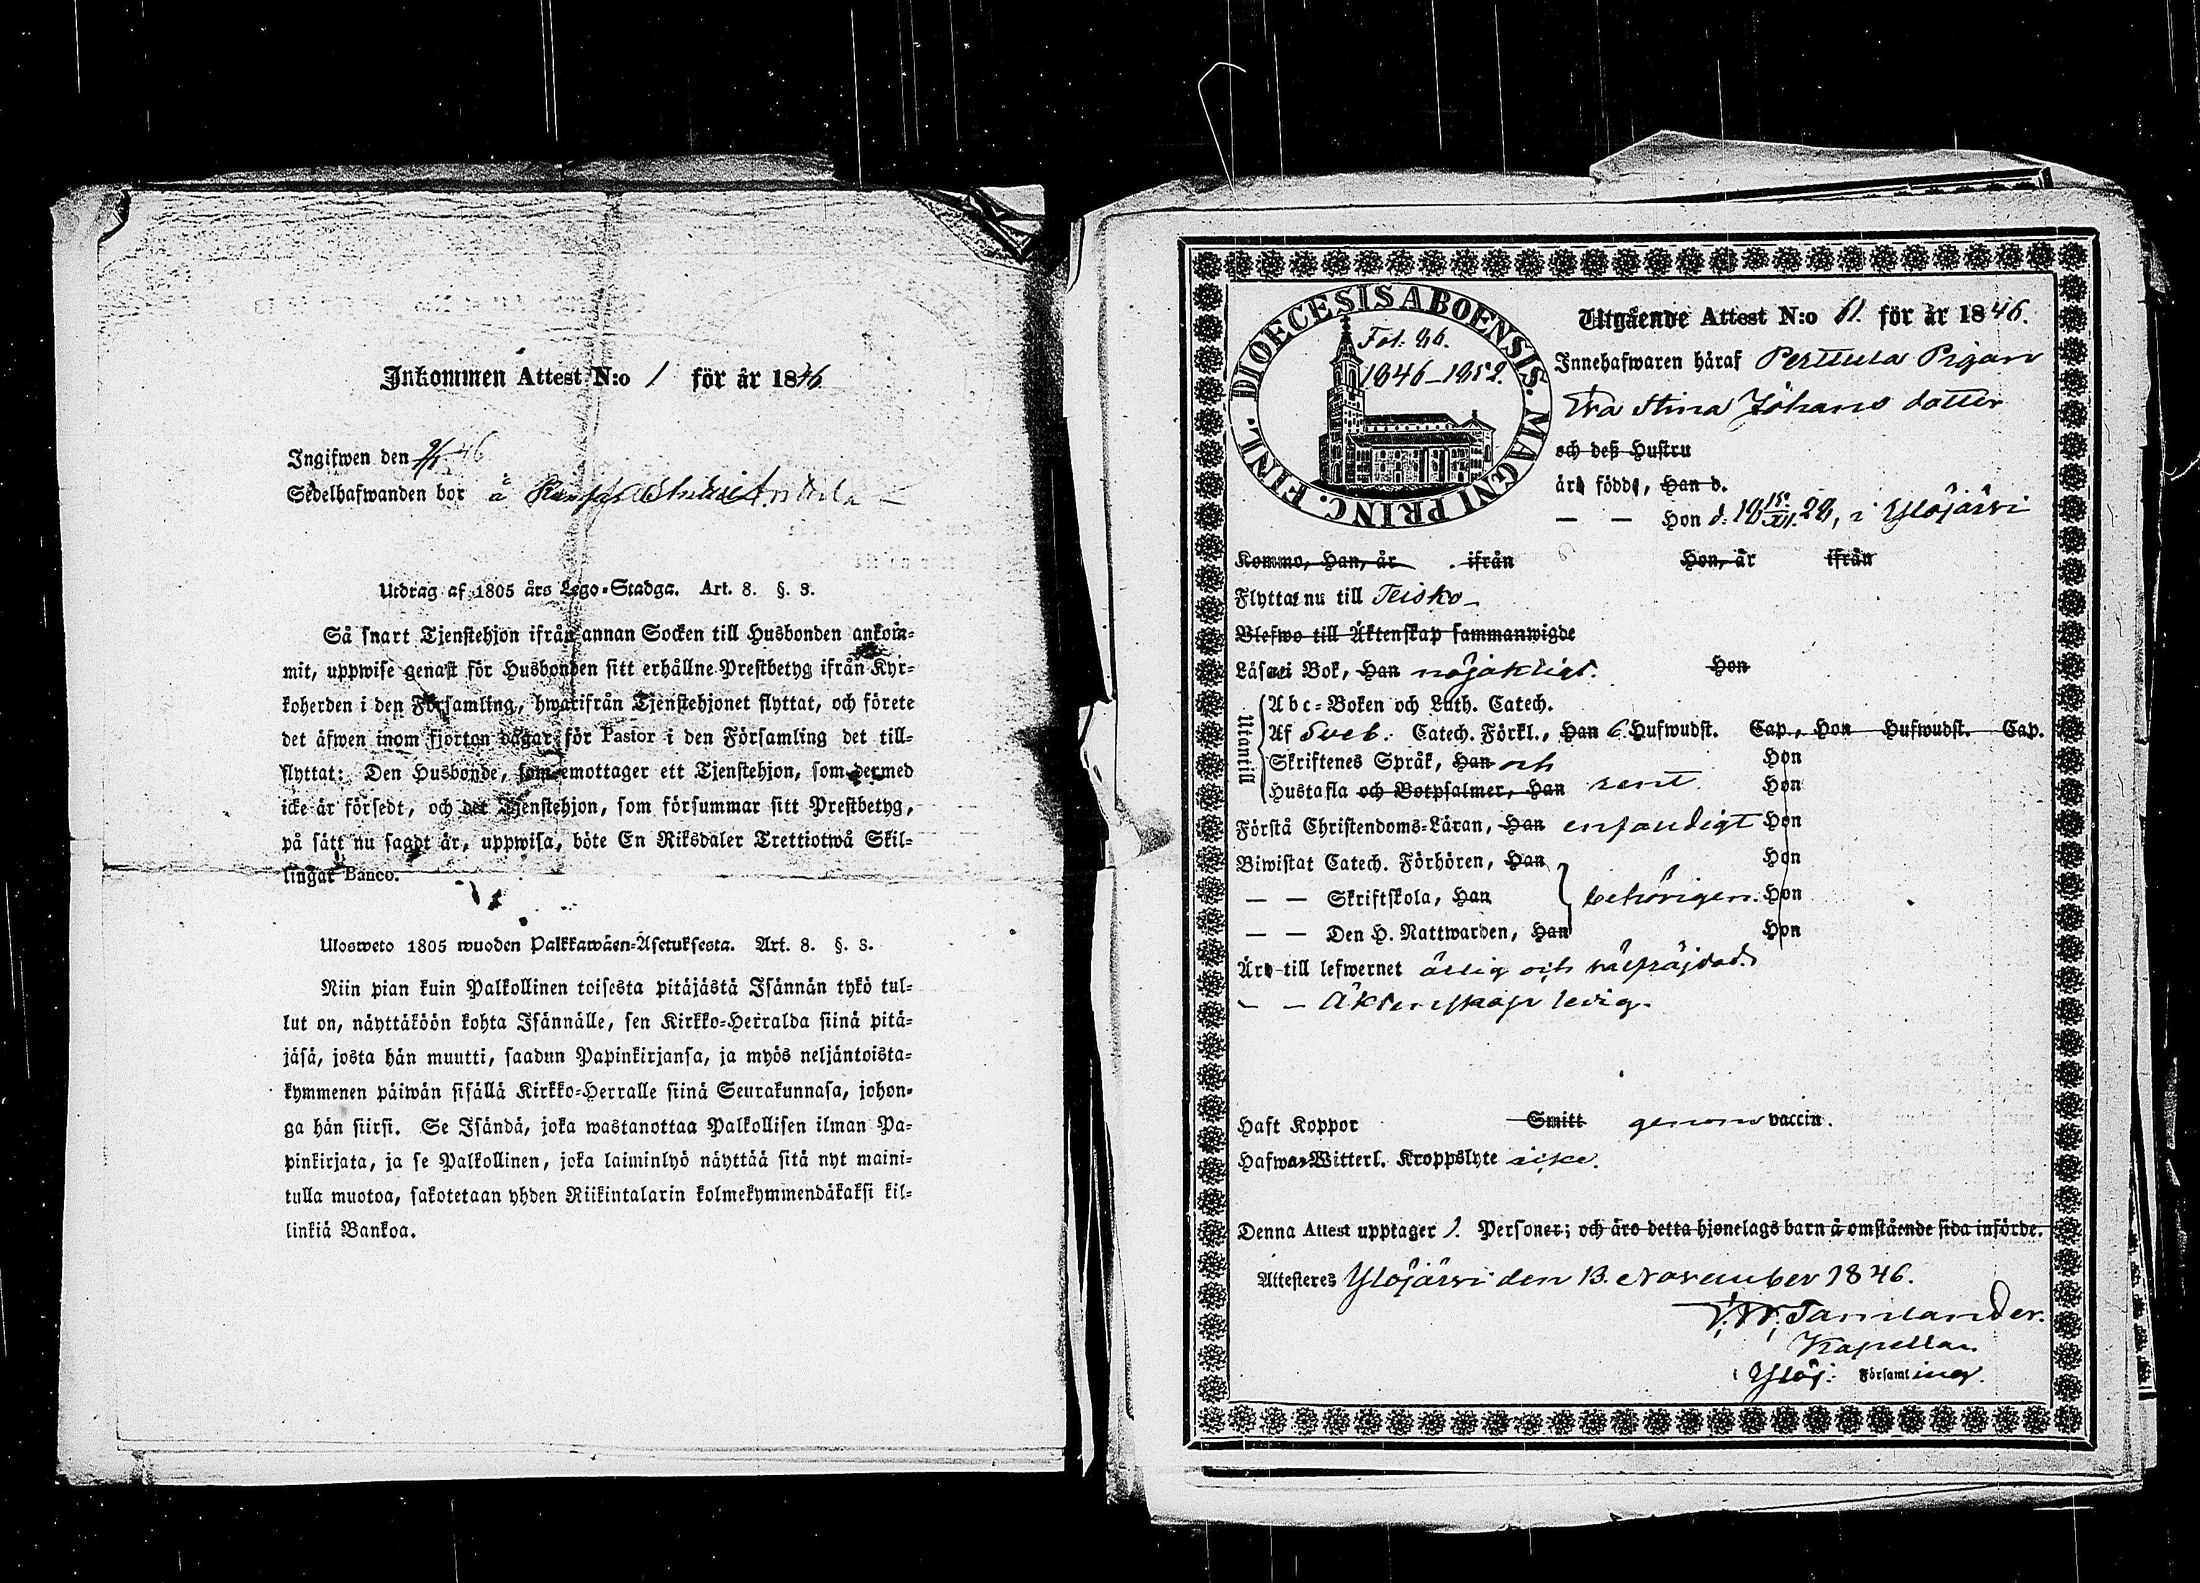 Inkommen Attest N:o 1 för år 1846
Ingifwen den 9/1 46
Sedelhafwanden bor å
Utdrag af 1805 års Lego-Stadga. Art. 8. §. 3.
Så snart Tjenstehjon ifrån annan Socken till Husbonden ankom-
mit, uppwise genast för Husbonden sitt erhållne Prestbetyg ifrån Kyr-
koherden i den Församling, hwarifrån Tjenstehjonet flyttat, och förete
det äfwen inom fjorton dagar för Pastor i den Församling det till-
flyttat: Den Husbonde, som emottager ett Tjenstehjon, som dermed
icke är försedt, och det Tjenstehjon, som försummar sitt Prestbetyg,
på sätt nu sagdt är, uppwisa, böte En Riksdaler Trettiotwå Skil-
lingar Banco.
Ulosweto 1805 wuoden Palkkawäen-Asetuksesta. Art. 8. §. 3.
Niin pian kuin Palkollinen toisesta pitäjästä Isännän tykö tul-
lut on, näyttäköön kohta Isännälle, sen Kirkko-Herralda siinä pitä-
jäsä, josta hän muutti, saadun Papinkirjansa, ja myös neljäntoista-
kymmenen päiwän sisällä Kirkko-Herralle siinä Seurakunnasa, johon-
ga hän siirsi. Se Isändä, joka wastanottaa Palkollisen ilman Pa-
pinkirjata, ja se Palkollinen, joka laiminlyö näyttää sitä nyt maini-
tulla muotoa, sakotetaan yhden Riikintalarin kolmekymmendäkaksi kil-
linkiä Bankoa.
DIOECESIS ABOENSIS. MAGNI PRINC. FINL.
Fol. 96.
1846–1852.
Utgående Attest N:o 61. för år 1846.
Innehafwaren häraf Perttula Pigan
Eva Stina Johans dotter
och deß Hustru
äro födde, Han d.
— — Hon d. 18 15/XI. 28, i Ylöjärvi
Kommo, Han, år ifrån Hon, år ifrån
Flyttar nu till Teisko
Blefwo till Äktenskap sammanwigde
Läsa i Bok, Han nöjaktigt. Hon
Utantill
Abc-Boken och Luth. Catech.
Af Sveb. Catech. Förkl., Han 6. Hufwudst. Cap., Hon Hufwudst. Cap.
Skriftenes Språk, Han och Hon
Hustafla och Botpsalmer, Han samt Hon
Förstå Christendoms-Läran, Han enfaldigt Hon
Biwistat Catech. Förhören, Han Hon
— — Skriftskola, Han behörigen. Hon
— — Den H. Nattwarden, Han Hon
Äro till lefwernet ärlig och välfräjdad.
— — Äktenskap ledig.
Haft Koppor Smitt genom vaccin.
Hafwa Witterl. Kroppslyte icke.
Denna Attest upptager 1. Personer; och äro detta hjonelags barn å omstående sida införde.
Attesteres Ylöjärvi den 13. November 1846.
Kapellan
i Ylöj. Församling.